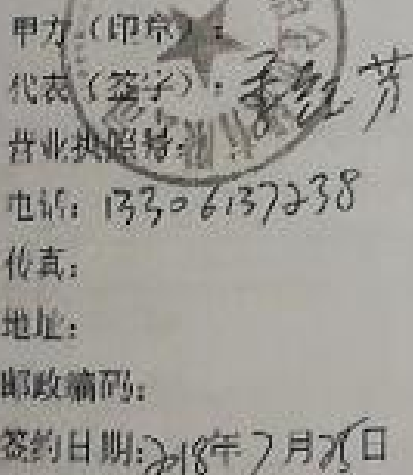 甲方（印章）：
代表（签字）：芳
营业执照号：
电话：13306137238
传真：
地址：
邮政编码：
签约日期：2018年7月 日